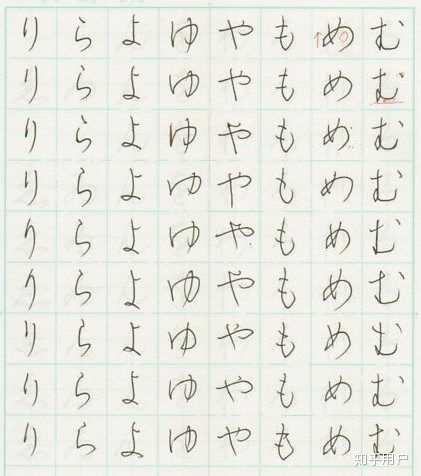 むむむむむむむむむ
めめめめめめめめめ
ももももももももも
ややややややややや
ゆゆゆゆゆゆゆゆゆ
よよよよよよよよよ
ららららららららら
りりりりりりりりり
知乎用户